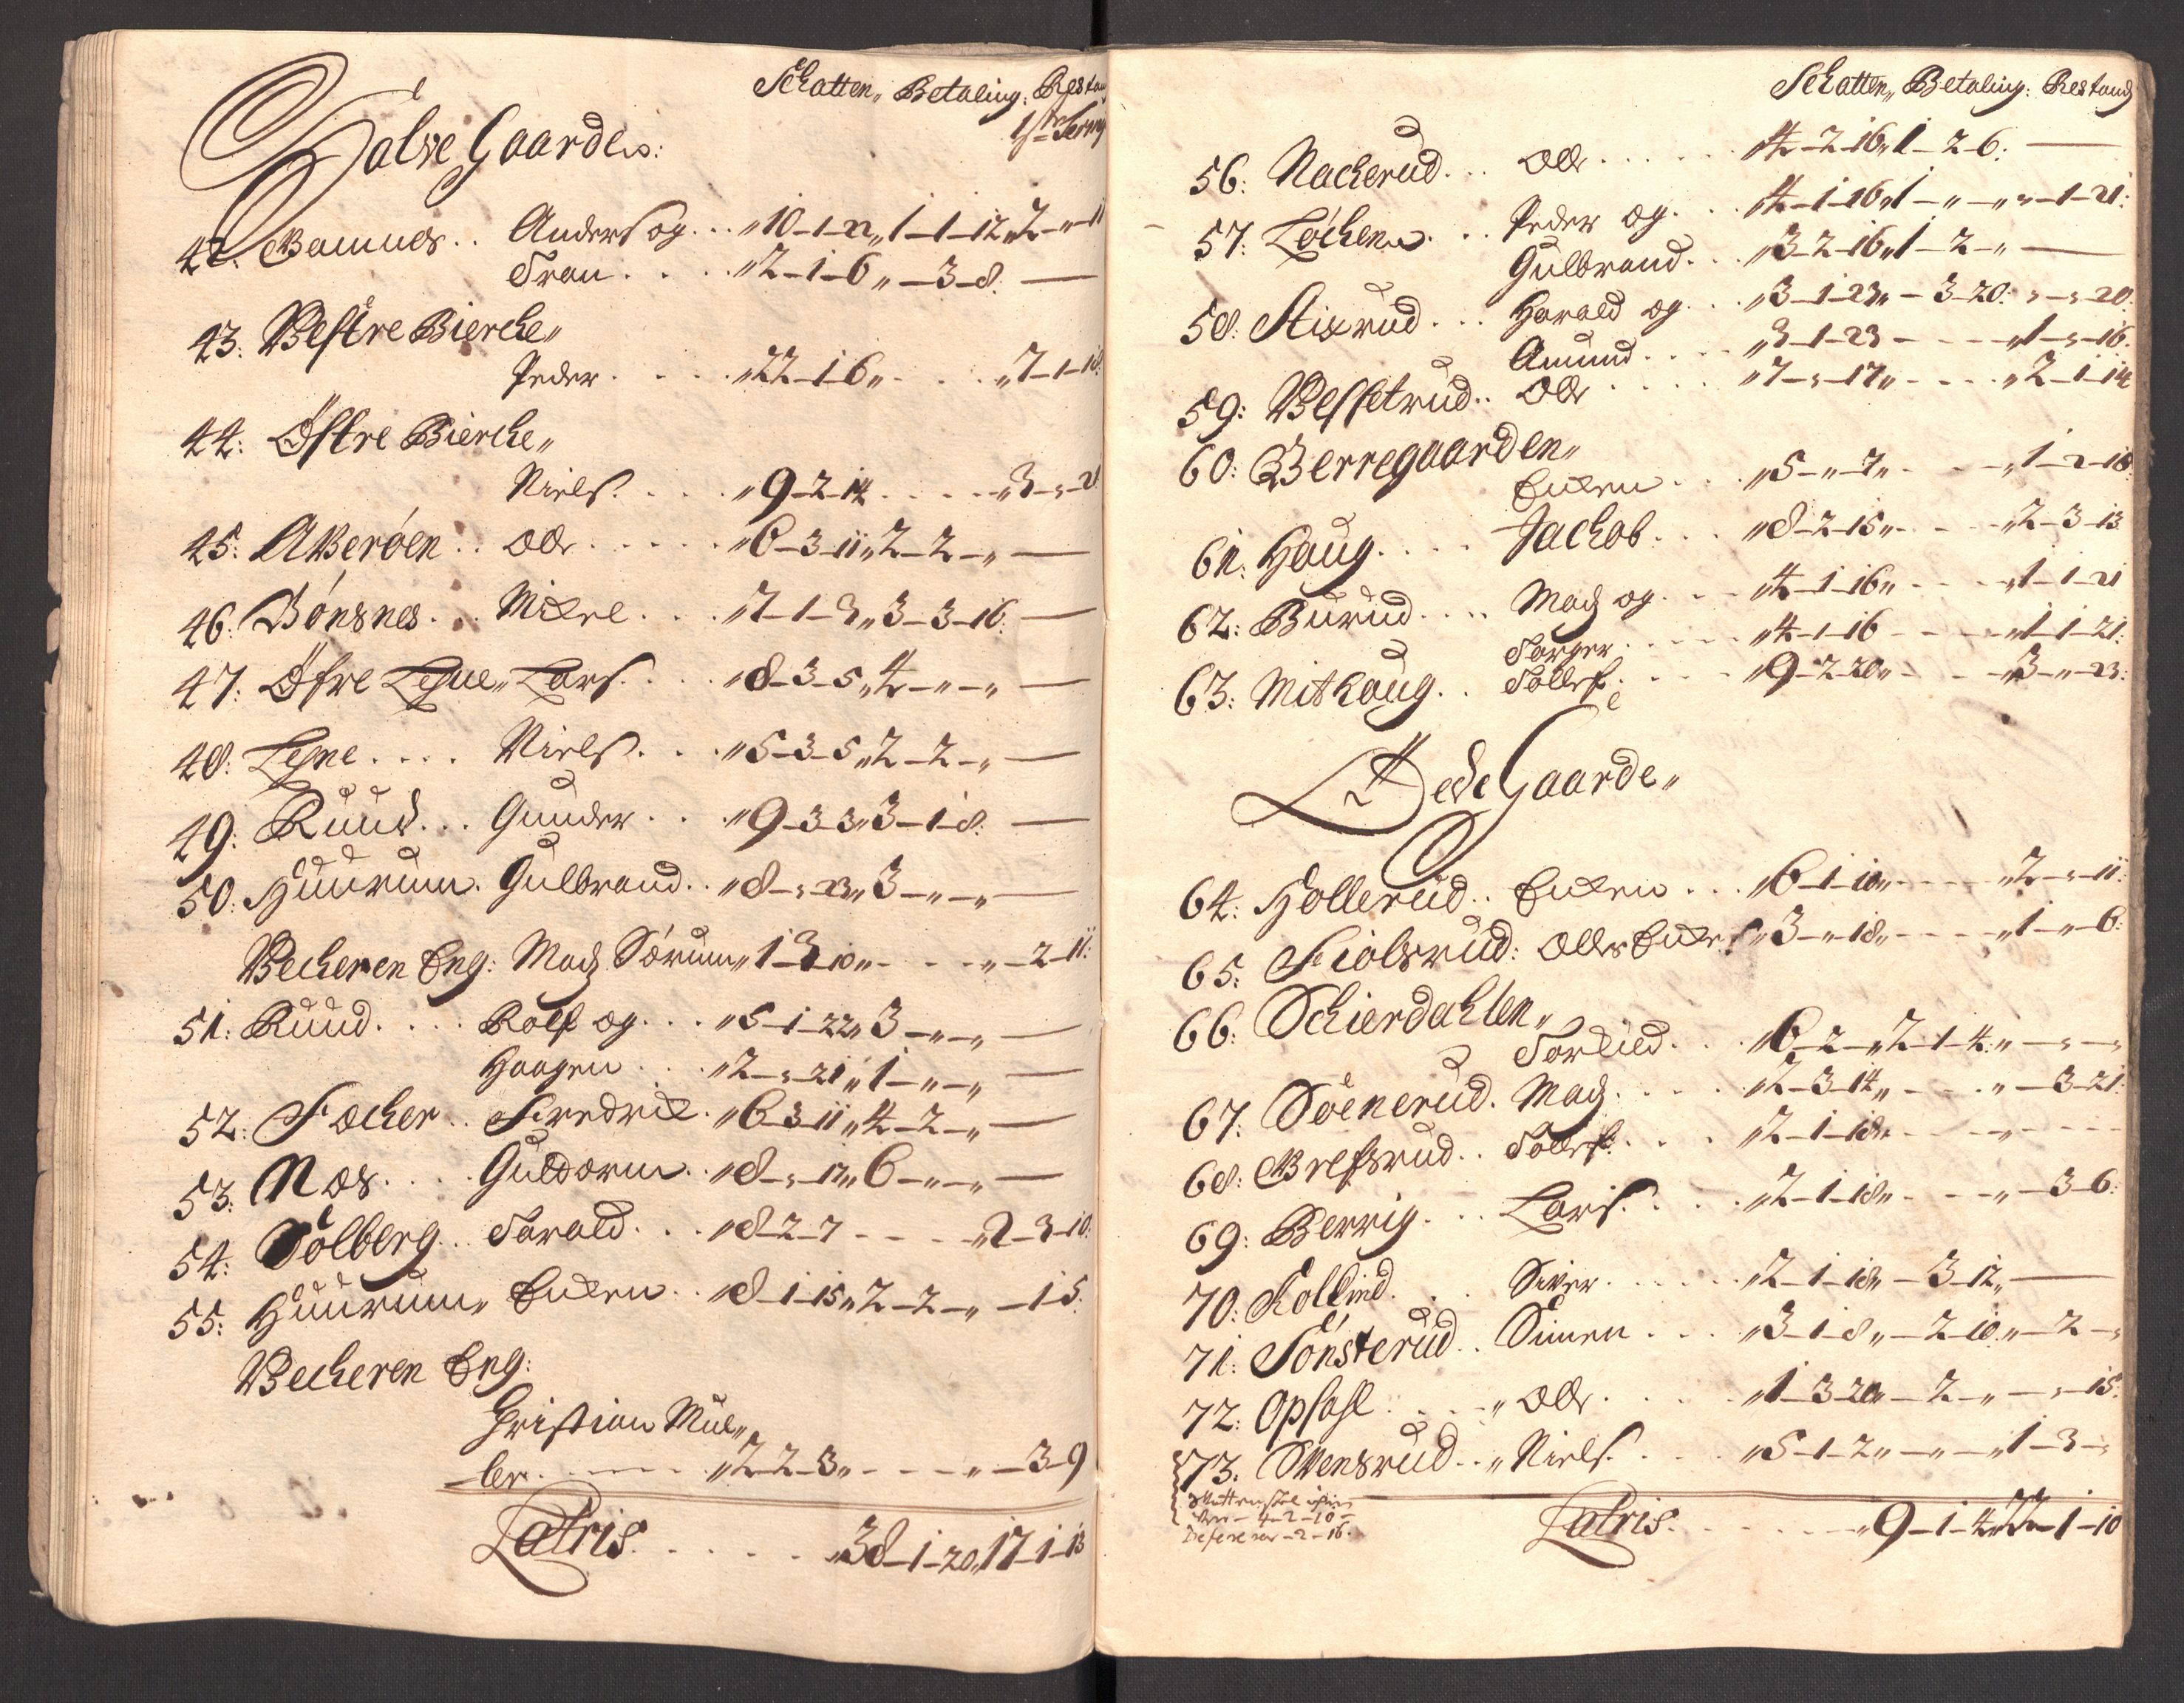 Schatten„ Betaling: Restan
Halve Gaarder:
42. Bamnes.. Anders og... „10-1-22„1-1-12„2-„11
Tron.... „2-1-6„-3-8. —
43. Vestre Bierche„
Peder..... „22-1-6„... „7-1-18.
44: Østre Bierche„
Niels.... „9-2-14..... „3-„-21
45: Aкerøen.. Ole..... „6-3-11„2-2-„—
46. Bónsnes... Mickel... „7-1-3„3-3-16. —
47: Øfre Legne„ Lars.... „8-3-5„4-„-„ —
48: Legne.... Niels... „5-3-5„2-2-„ —
49: Ruud... Gunder... „9-3-3„3-1-8. —
50: Huurum. Gulbrand.. „8-„-23„3-„-„ —
Becheren Eng: Mads Sørum„1-3-10„.... „-2-11:
51: Ruud.... Rolf og... „5-1-22„3-„-„ —
Haagen... „2-„-21„1-„-„ —
52: Focher.. Fredrick. „6-3-11„4-2-„ —
53: Næs.... Guldorm.. „8-„-17„6-„-„ —
54: Solberg.. Harald... „8-2-7.... „2-3-10:
55: Huurum„ Encken.. „8-1-15„2-2-„ -1-5.
Becheren Eng:
Christian Mül„
ler..... „2-2-3„.... „-3-9
Latris..... „38-1-20„17-1-13
Schatten„ Betaling: Restand
56: Nacherud... Ole...... „4-2-16„1-2-6: —
57: Løchen... Peder og... „4-1-16„1-„-„„-1-21:
Gulbrand.. „3-2-16„1-2-„ —
58: Stixrud... Harald og.. „3-1-23„-3-20: „-„-20.
Amund.... „3-1-23-.... „1-„-16.
59: Vesetrud.. Ole..... „7-„-17„.... „2-1-14
60: Berregaarden„
Encken... „5-„-7„.... „1-2-18
61: Haug.... Jachob... „8-2-15„.... „2-3-13
62: Burud.... Mads og... „4-1-16„.... „1-1-21
Torger.... „4-1-16.... „1-1-21:
63: Mithaug.. Tollef.... „9-2-20„... „3-„-23:
Øde Gaarde„
64: Hollerud.. Encken... „6-1-10„.... „2-„-11:
65: Fiolsrud: Oles Encke „3-„-18„.... „1-„-6:
66: Schierdahlen„
Torkild... „6-2-„2-1-4:„-„-„
67: Søenerud. Mads.... „2-3-14„... „-3-21:
68: Brefsrud.. Tollef... „2-1-18„....
69: Berrig... Lars.... „2-1-18„.... „-3-6:
70: Kollind... Siver.... „2-1-18„-3-12„ —
71: Tónsterud.. Simen... „3-1-8„-2-10„-2-„
72: Opsahl.... „Ole.... „1-3-20„-2-„ -„-15.
73. Svensrud.. „Niels.... „5-1-2„-„-„1-3-„
Latris...... „9-1-4„22-1-10